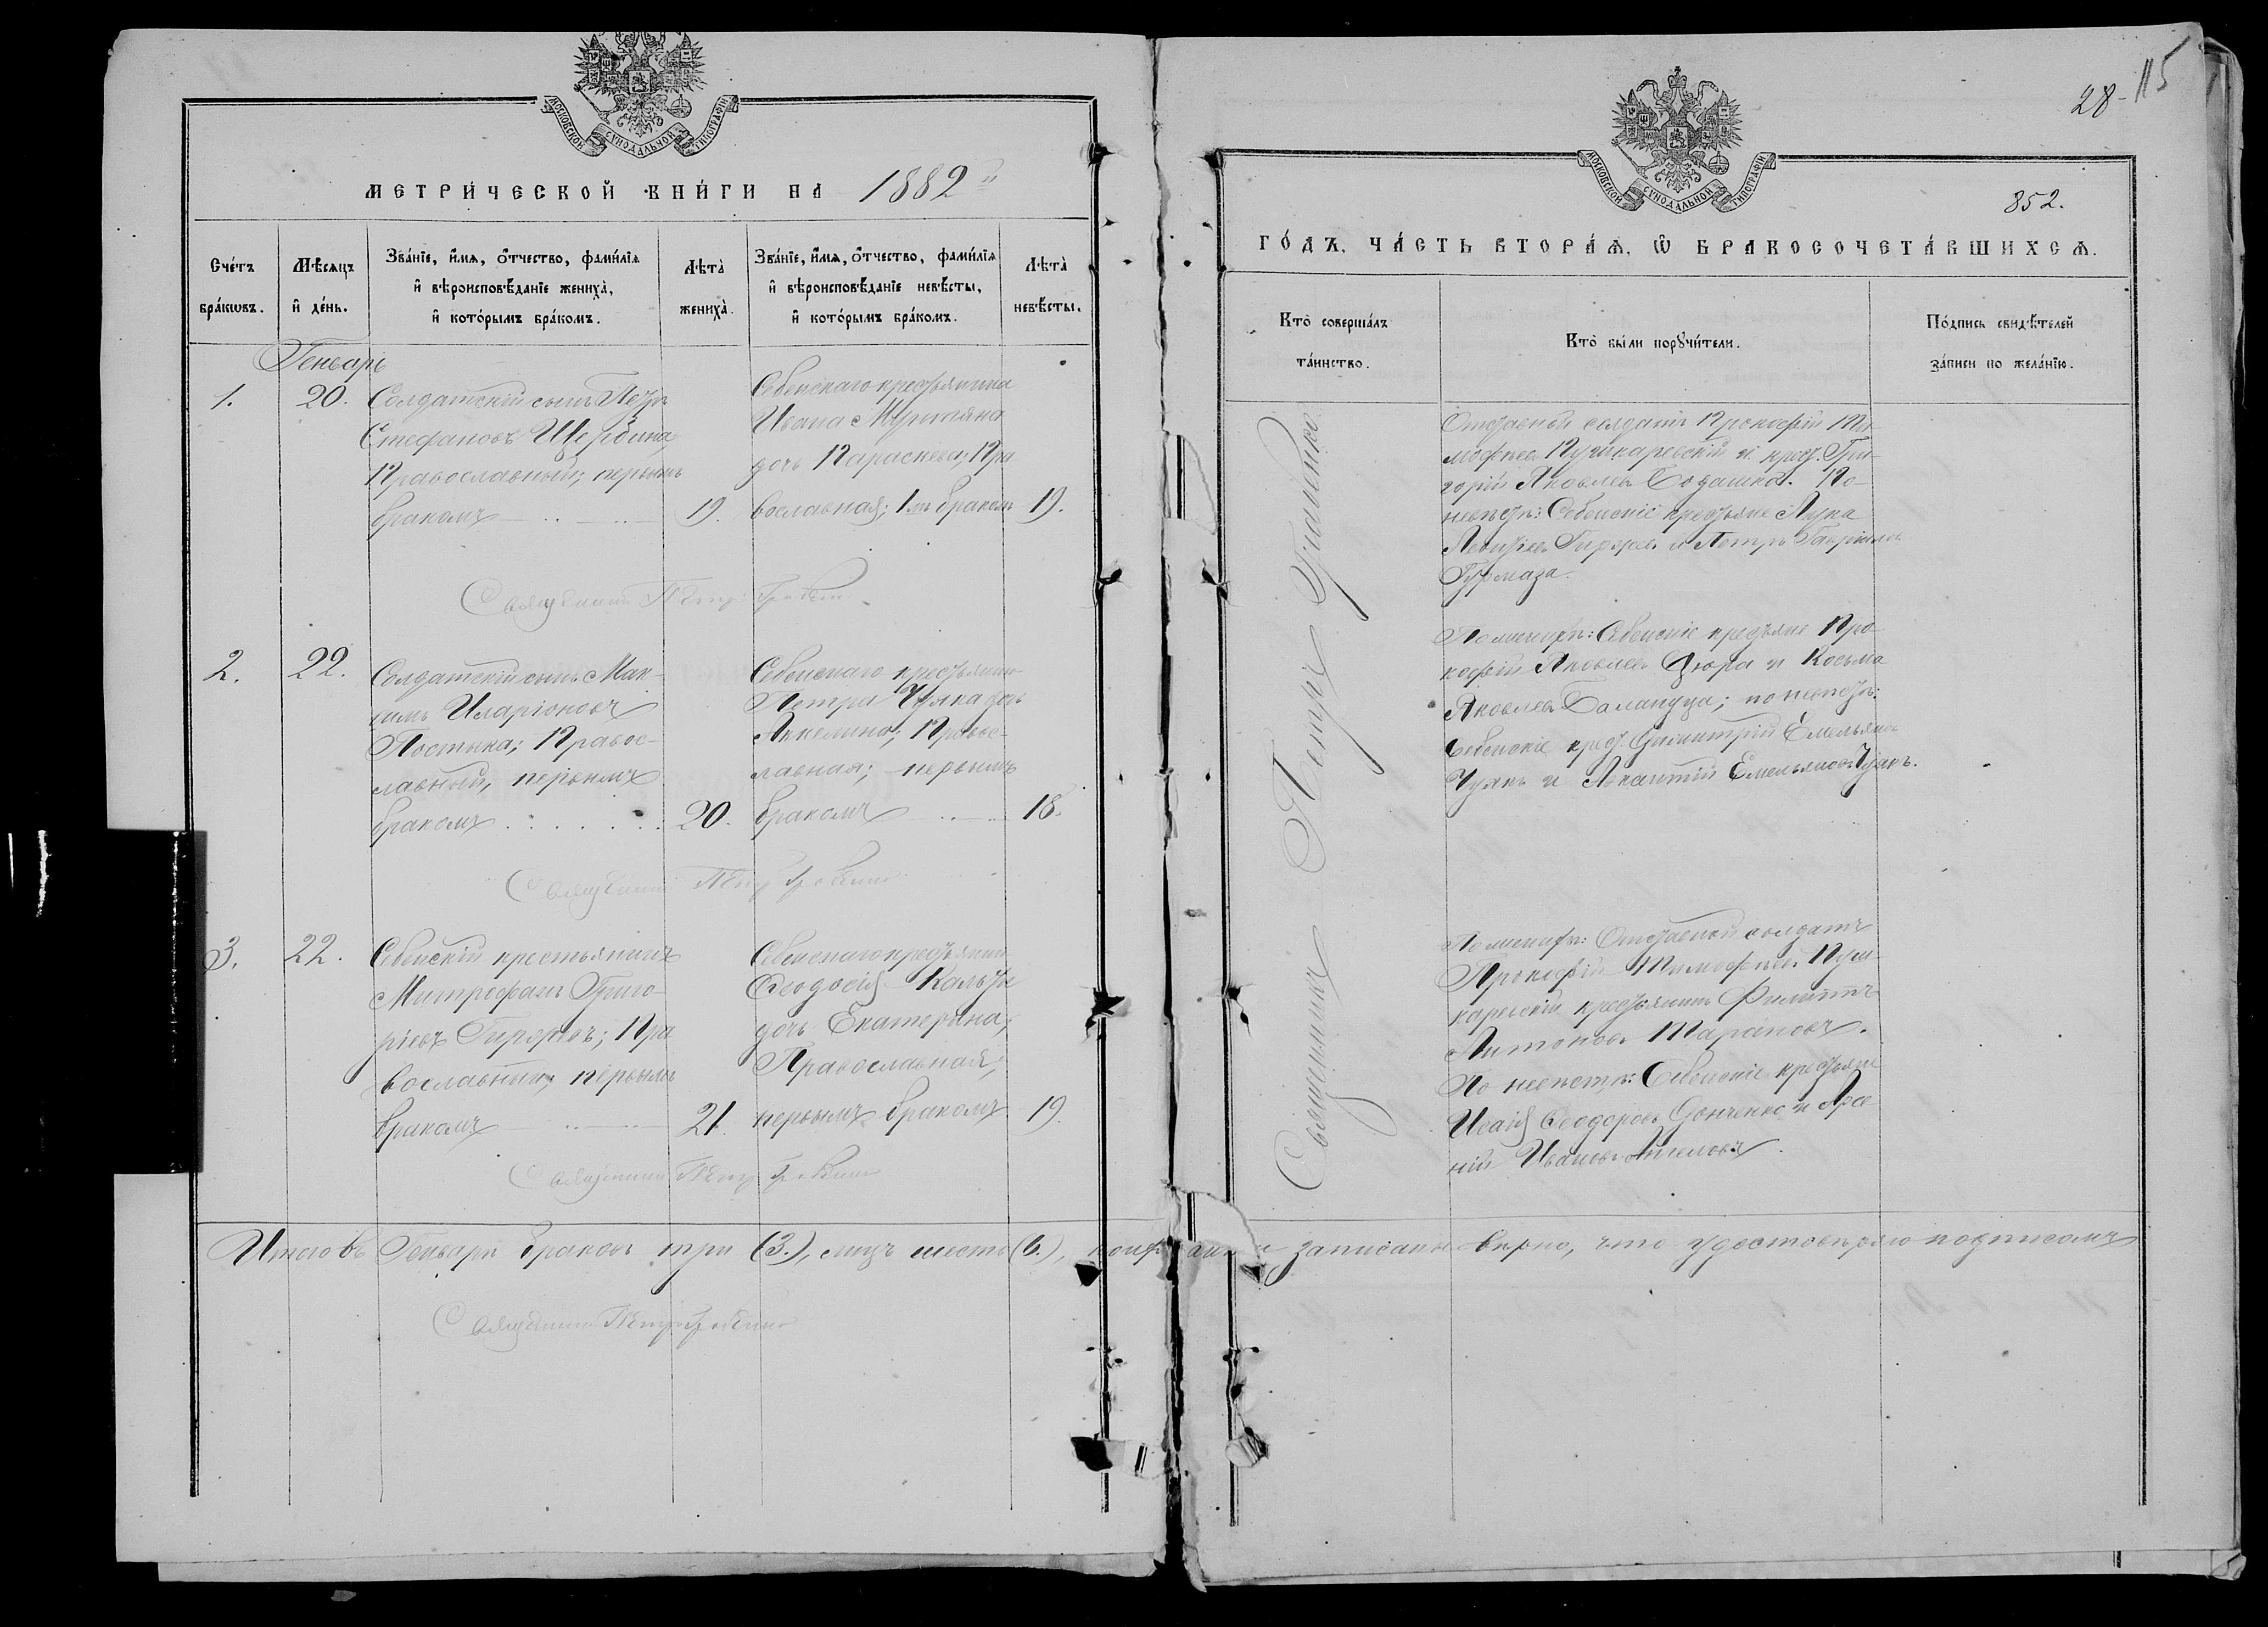 МОСКОВСКОЙ СѴНОДАЛЬНОЙ ТИПОГРАФІИ
МЕТРИ́ЧЕСКОЙ КНИ́ГИ НА 1882й
Сче́тъ бра́кѡвъ.
Мѣ́сяцъ и҆ де́нь.
Зва́нїе, и҆́мѧ, ѻ҆́тчество, фами́лїѧ и҆ вѣроисповѣ́данїе жениха̀, и҆ кото́рымъ бра́комъ.
Лѣта̀ жениха̀.
Зва́нїе, и҆́мѧ, ѻ҆́тчество, фами́лїѧ и҆ вѣроисповѣ́данїе невѣ́сты, и҆ кото́рымъ бра́комъ.
Лѣта̀ невѣ́сты.
Генварь
1.
20.
Солдатскій сынъ Петръ
Стефановъ Щербина,
Православный; первымъ
бракомъ
19.
Себенскаго крестьянина
Ивана
дочь Параскева; Пра
вославная; 1мъ бракомъ
19.
Священникъ Петръ
2.
22.
Солдатскій сынъ Мак-
симъ Иларіоновъ
Постыка; Правос-
лавный, первымъ
бракомъ
20.
Себенскаго крестьянина
Петра Чумака дочь
Акилина; Правос-
лавная; первымъ
бракомъ
18.
Священникъ Петръ
3.
22.
Себенскій крестьянинъ
Митрофанъ Григо-
ріевъ Пра
вославный; первымъ
бракомъ
21.
Себенскаго крестьянина
Ѳеодосія
дочь Екатерина;
Православная,
первымъ бракомъ
19.
Священникъ Петръ
Итого въ Генварѣ браковъ три (3.), лицъ шесть (6.), записаны вѣрно, что удостовѣряю подписомъ
Священникъ Петръ
28-
115
МОСКОВСКОЙ СѴНОДАЛЬНОЙ ТИПОГРАФІИ
352.
ГО́ДЪ, ЧА́СТЬ ВТОРА́Ѧ, Ѡ҆ БРАКОСОЧЕТА́ВШИХСѦ.
Кто̀ соверша́лъ та́инство.
Кто̀ бы́ли порꙋчи́тели.
По́дпись свидѣ́телей за́писи по жела́нїю.
Священникъ Петръ
Отставный солдатъ Прокофій Ти-
мофѣевъ Пушкаревскій и крест. Гри-
горій Яковлевъ По
невѣстѣ: Себенскіе крестьяне Лука
и Петръ Гавриловъ
По женихѣ: Себенскіе крестьяне Про-
кофій Яковлевъ Дюра и Косьма
Яковлевъ Баландуца; по невѣстѣ:
Себенскіе крест. Димитрій Емельяновъ
Чумакъ и Емельяновъ Чумакъ.
По женихѣ: Отставной солдатъ
Прокофій Тимофѣевъ Пуш-
каревскій крестьянинъ Филиппъ
Антоновъ Тарановъ.
По невѣстѣ: Себенскіе крестьяне
Исаія Ѳеодоровъ Донченко и Арсе
ній Ивановъ